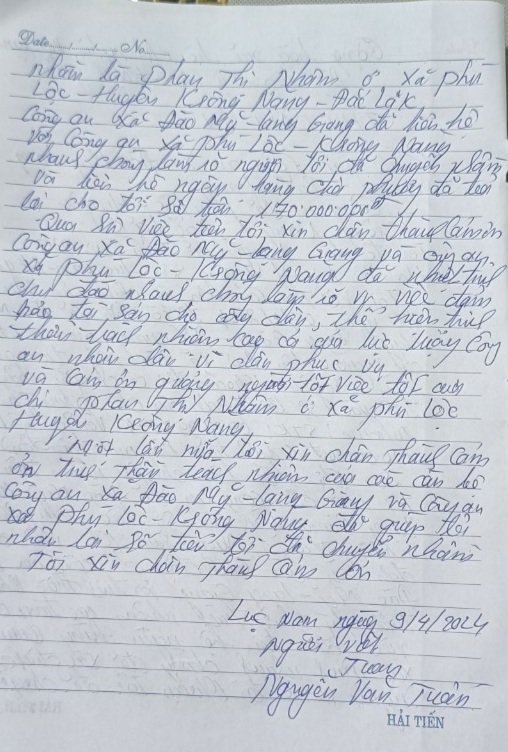 Date No
nhầm là Phan Thị Nhâm ở Xã phú
Lộc - Huyện Krông Năng - Đắc Lắk
Công an Xã Đào Mỹ - Lạng Giang đã liên hệ
với Công an xã phú Lộc - Krông Năng
nhanh chóng làm rõ người tôi đã chuyển nhầm
và liên hệ ngân hàng cho
lại cho tôi Số tiền 170.000.000đ
Qua Sự Việc trên tôi xin chân thành Cảm ơn
Công an Xã Đào Mỹ - Lạng Giang và công an
xã phú Lộc - Krông Năng đã nhiệt tình
chu đáo nhanh chóng làm rõ vụ việc đảm
bảo tài sản cho công dân, thể hiện tinh
thần trách nhiệm cao cả của lực lượng Công
an nhân dân vì dân phục vụ
và Cảm ơn gương người tốt việc tốt của
chị phan Thị Nhâm ở xã phú Lộc
Huyện Krông Năng
Một lần nữa tôi xin chân thành Cảm
ơn tinh thần trách nhiệm của các cán bộ
Công an Xã Đào Mỹ - Lạng Giang và Công an
xã Phú Lộc - Krông Năng đã giúp tôi
nhận lại Số tiền tôi đã chuyển nhầm
Tôi xin chân thành Cảm ơn
Lục Nam ngày 9/4/2024
Người viết
Tuấn
Nguyễn Văn Tuấn
HẢI TIẾN